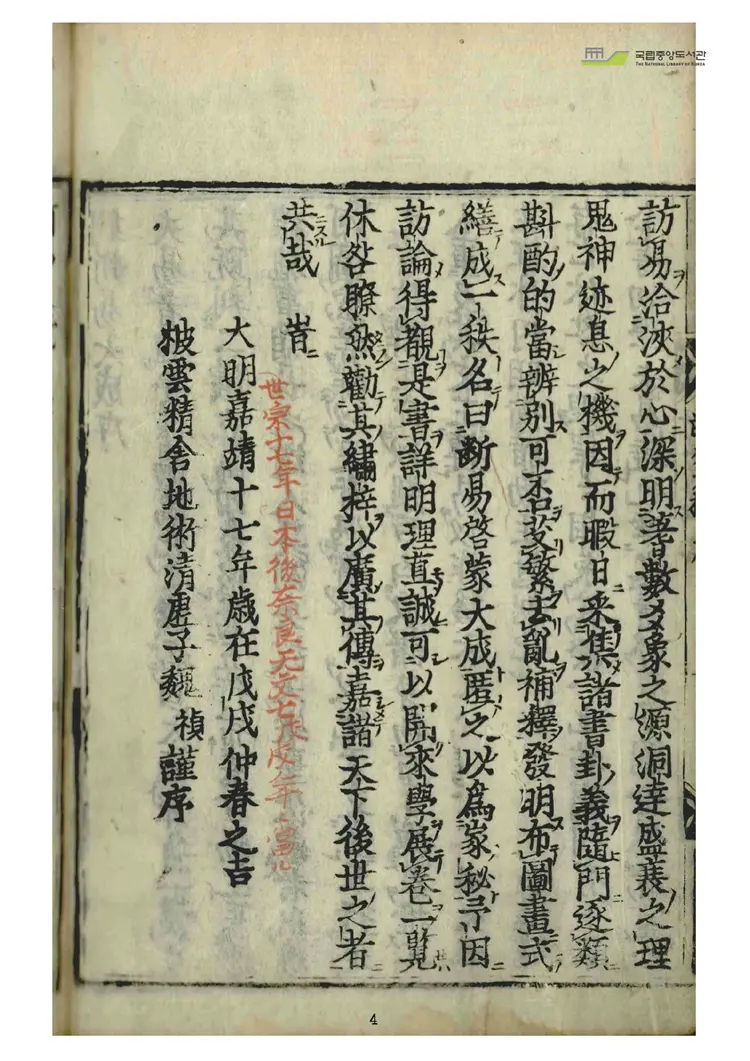 국립중앙도서관
THE NATIONAL LIBRARY OF KOREA
訪易洽浹於心深明蓍數爻象之源洞達盛衰之理
鬼神迹息之機因而暇日采集諸書卦義隨門逐類
斟酌的當辨別可否芟繁去亂補釋發明布圖畫式
繕成一秩名曰斷易啓蒙大成匿之以爲家秘予因
訪論得觀是書詳明理直誠可以開來學展卷一覽
休咎瞭然勸其繡梓以廣其傳嘉諧天下後世之者
共哉 旹
大明嘉靖十七年歲在戊戌仲春之吉
世宗十七年日本後奈良天文七戊戌年ニ當ル
披雲精舍地術清虛子魏禎謹序
4